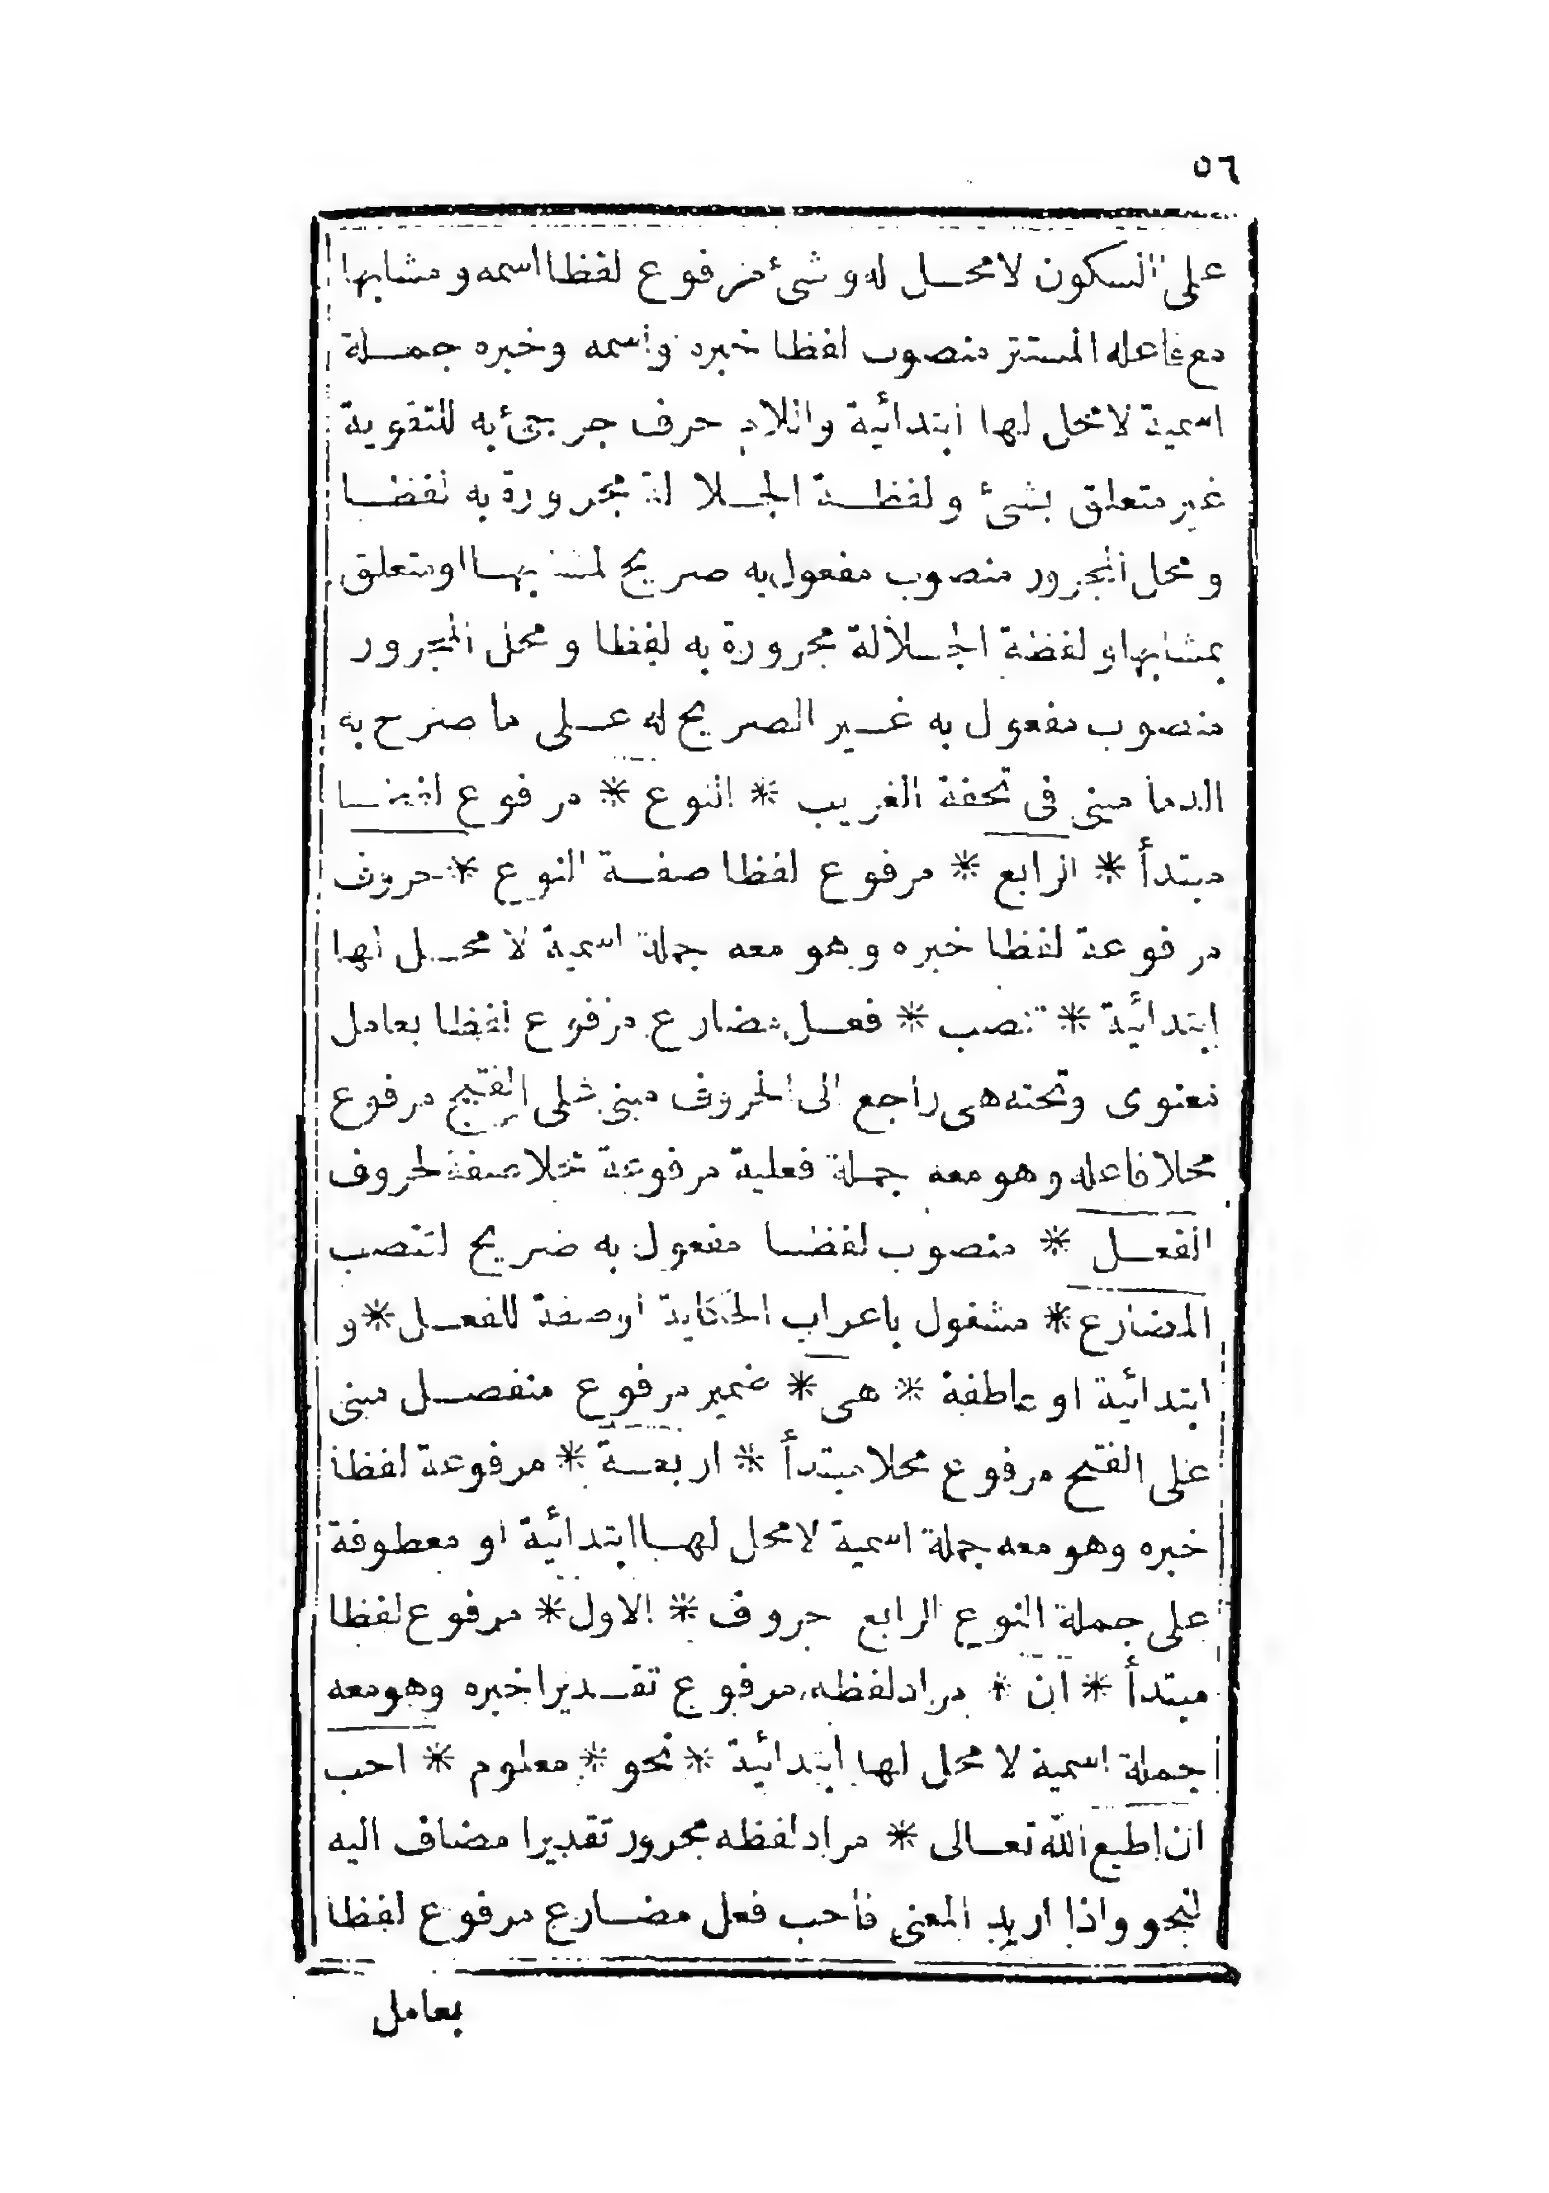 ٥٦
على السكون لا محل له و شئ مرفوع لفظا اسمه و مشابها
مع فاعله المستتر منصوب لفظا خبره واسمه وخبره جملة
اسمية لا محل لها ابتدائية واللام حرف جر جئ به للتقوية
غير متعلق بشئ و لفظة الجلالة مجرورة به لفظا
و محل المجرور منصوب مفعول به صريح لمشابها او متعلق
بمشابها و لفظة الجلالة مجرورة به لفظا و محل المجرور
منصوب مفعول به غير الصريح له على ما صرح به
الدماميني في تحفة الغريب * النوع * مرفوع لفظا
مبتدأ * الرابع * مرفوع لفظا صفة النوع * حروف
مرفوعة لفظا خبره وهو معه جملة اسمية لا محل لها
ابتدائية * تنصب * فعل مضارع مرفوع لفظا بعامل
معنوى وتحته هى راجع الى الحروف مبنى على الفتح مرفوع
محلا فاعله وهو معه جملة فعلية مرفوعة محلا صفة لحروف
الفعل * منصوب لفظا مفعول به صريح لتنصب
المضارع * مشغول باعراب الحكاية او صفة للفعل * و
ابتدائية او عاطفة * هى * ضمير مرفوع منفصل مبنى
على الفتح مرفوع محلا مبتدأ * اربعة * مرفوعة لفظا
خبره وهو معه جملة اسمية لا محل لها ابتدائية او معطوفة
على جملة النوع الرابع حروف * الاول * مرفوع لفظا
مبتدأ * ان * مراد لفظه مرفوع تقديرا خبره وهو معه
جملة اسمية لا محل لها ابتدائية * نحو * معلوم * احب
ان اطيع الله تعالى * مراد لفظه مجرور تقديرا مضاف اليه
لنحو واذا اريد المعنى فاحب فعل مضارع مرفوع لفظا
بعامل